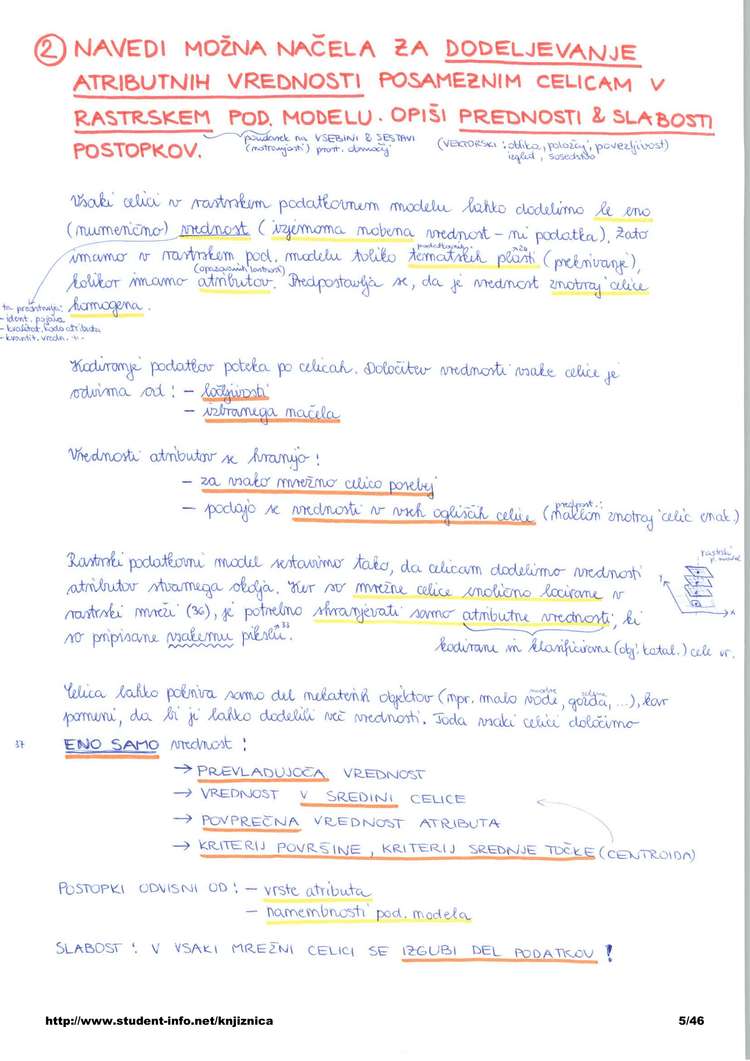 2 NAVEDI MOŽNA NAČELA ZA DODELJEVANJE
ATRIBUTNIH VREDNOSTI POSAMEZNIM CELICAM V
RASTRSKEM POD. MODELU. OPIŠI PREDNOSTI & SLABOSTI
poudarek na VSEBINI & SESTAVI
(notranjosti) prost. območij
(VEKTORSKI: oblika, položaj, povezljivost)
izgled, sosedstvo
POSTOPKOV.
Vsaki celici v rastrskem podatkovnem modelu lahko dodelimo le eno
(numerično) vrednost (izjemoma nobena vrednost - ni podatka). Zato
imamo v rastrskem pod. modelu toliko tematskih plasti (prekrivanje),
(opazovanih lastnosti)
kolikor imamo atributov. Predpostavlja se, da je vrednost znotraj celice
homogena.
ta predstavlja:
- ident. pojava
- kvalitat. kodo atributa
- kvantit. vredn. -"-
Kodiranje podatkov poteka po celicah. Določitev vrednosti vsake celice je
odvisna od: - ločljivosti
- izbranega načela
Vrednosti atributov se hranijo:
- za vsako mrežno celico posebej
- podajo se vrednosti v vseh ogliščih celice (predpost.: naklon znotraj celic enak)
Rastrski podatkovni model sestavimo tako, da celicam dodelimo vrednosti
atributov stvarnega okolja. Ker so mrežne celice enolično locirane v
rastrski mreži (36), je potrebno shranjevati samo atributne vrednosti, ki
so pripisane vsakemu pikslu.*33
kodirane in klasificirane (obj. katal.) cele vr.
rastrski
p. model
Y
X
Celica lahko pokriva samo del nekaterih objektov (npr. malo vode, gozda, ...), kar
pomeni, da bi ji lahko dodelili več vrednosti. Toda vsaki celici določimo
37 ENO SAMO vrednost:
→ PREVLADUJOČA VREDNOST
→ VREDNOST V SREDINI CELICE
→ POVPREČNA VREDNOST ATRIBUTA
→ KRITERIJ POVRŠINE, KRITERIJ SREDNJE TOČKE (CENTROIDA)
POSTOPKI ODVISNI OD: - vrste atributa
- namembnosti pod. modela
SLABOST: V VSAKI MREŽNI CELICI SE IZGUBI DEL PODATKOV!
http://www.student-info.net/knjiznica
5/46